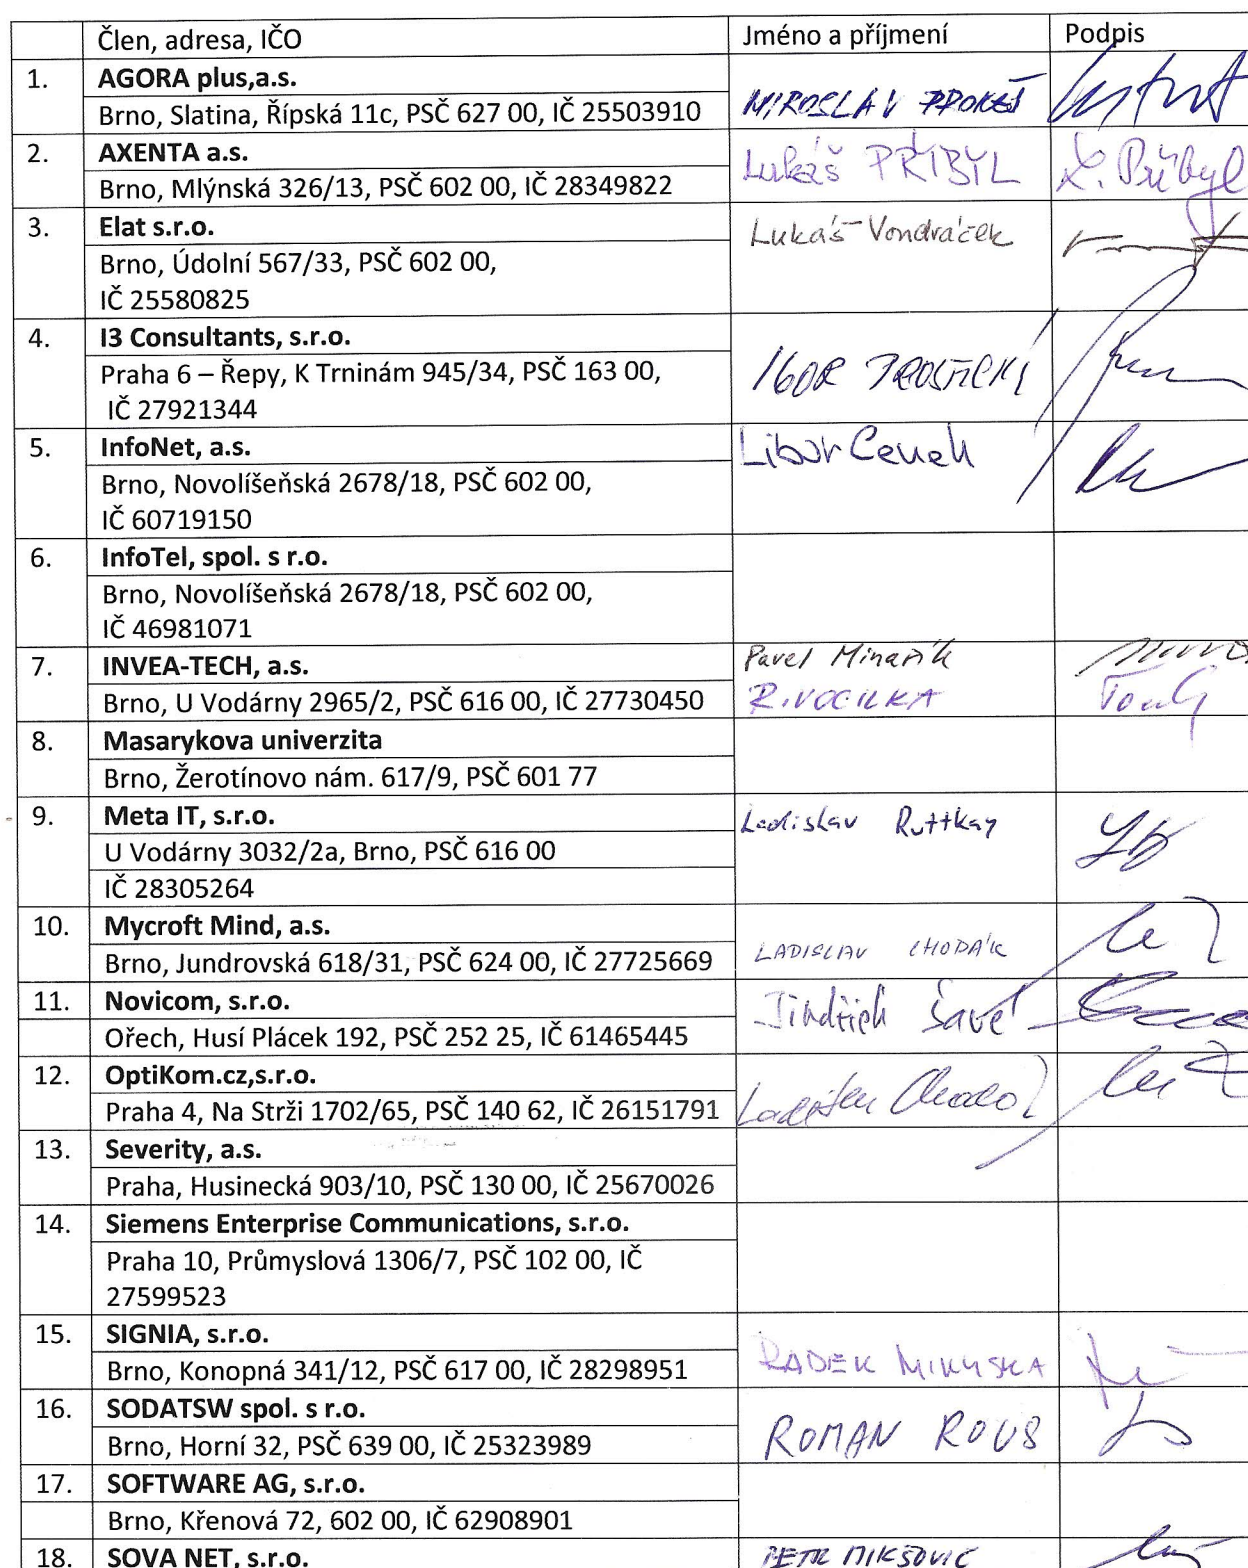 Člen, adresa, IČO Jméno a příjmení Podpis
1. AGORA plus,a.s.
Brno, Slatina, Řípská 11c, PSČ 627 00, IČ 25503910 MIROSLAV PROKEŠ
2. AXENTA a.s.
Brno, Mlýnská 326/13, PSČ 602 00, IČ 28349822 Lukáš PŘIBYL L. Přibyl
3. Elat s.r.o. Lukáš Vondráček
Brno, Údolní 567/33, PSČ 602 00,
IČ 25580825
4. I3 Consultants, s.r.o.
Praha 6 – Řepy, K Trninám 945/34, PSČ 163 00, IGOR
IČ 27921344
5. InfoNet, a.s. Libor Cenek
Brno, Novolíšeňská 2678/18, PSČ 602 00,
IČ 60719150
6. InfoTel, spol. s r.o.
Brno, Novolíšeňská 2678/18, PSČ 602 00,
IČ 46981071
7. INVEA-TECH, a.s. Pavel Minařík
Brno, U Vodárny 2965/2, PSČ 616 00, IČ 27730450 R. VOCILKA
8. Masarykova univerzita
Brno, Žerotínovo nám. 617/9, PSČ 601 77
9. Meta IT, s.r.o. Ladislav Ruttkay
U Vodárny 3032/2a, Brno, PSČ 616 00
IČ 28305264
10. Mycroft Mind, a.s.
Brno, Jundrovská 618/31, PSČ 624 00, IČ 27725669 LADISLAV CHODÁK
11. Novicom, s.r.o. Jindřich Šavel
Ořech, Husí Plácek 192, PSČ 252 25, IČ 61465445
12. OptiKom.cz,s.r.o.
Praha 4, Na Strži 1702/65, PSČ 140 62, IČ 26151791 Ladislav Chodák
13. Severity, a.s.
Praha, Husinecká 903/10, PSČ 130 00, IČ 25670026
14. Siemens Enterprise Communications, s.r.o.
Praha 10, Průmyslová 1306/7, PSČ 102 00, IČ
27599523
15. SIGNIA, s.r.o.
Brno, Konopná 341/12, PSČ 617 00, IČ 28298951 RADEK MIKYSKA
16. SODATSW spol. s r.o.
Brno, Horní 32, PSČ 639 00, IČ 25323989 ROMAN ROUS
17. SOFTWARE AG, s.r.o.
Brno, Křenová 72, 602 00, IČ 62908901
18. SOVA NET, s.r.o. PETR MIKŠOVIC